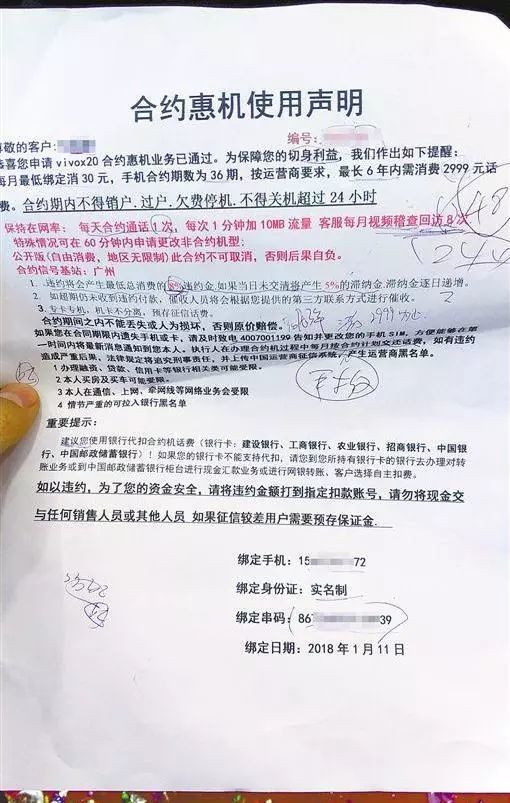 合约惠机使用声明
尊敬的客户:
编号:
恭喜您申请 vivox20 合约惠机业务已通过。为保障您的切身利益，我们作出如下提醒:
每月最低绑定消 30 元，手机合约期数为 36 期，按运营商要求，最长 6 年内需消费 2999 元话
费。合约期内不得销户.过户.欠费停机.不得关机超过 24 小时
保持在网率: 每天合约通话 1 次，每次 1 分钟加 10MB 流量 客服每月视频稽查回访 8 次
特殊情况可在 60 分钟内申请更改非合约机型:
公开版(自由消费，地区无限制)此合约不可取消，否则后果自负。
合约信号基站: 广州
1. 违约将会产生最低总消费的 8%违约金.如果当日未交清将产生 5%的滞纳金.滞纳金逐日递增。
2. 如超期仍未收到违约付款，催收人员将会根据您提供的第三方联系方式进行催收。
3. 专卡专机，机卡不分离，预存征信话费。
合约期间之内不能丢失或人为损坏，否则原价赔偿。
如果您在合同期限内遗失手机或卡，请及时致电 4007001199 告知并更改您的手机 SIM，方便能够在第
一时间内将最新消息通知到您本人，执行人在办理合约机过程中每月按合约计划交还话费，如有违约
造成严重后果，法律规定将追究刑事责任，并上传中国运营商征信系统，产生运营商黑名单。
1 办理融资、贷款、信用卡等银行相关类可能受限。
2 本人买房及买车可能受限。
3 本人在通信、上网、牵网线等网络业务会受限
4 情节严重的可拉入银行黑名单
重要提示:
建议您使用银行代扣合约机话费（银行卡：建设银行、工商银行、农业银行、招商银行、中国银
行、中国邮政储蓄银行）！如果您的银行卡不能支持代扣，请您到您所持有银行卡的银行去办理对转
账业务或到中国邮政储蓄银行柜台进行现金汇款业务或进行网银转账、客户选择自主扣费。
如以违约，为了您的资金安全，请将违约金额打到指定扣款账号，请勿将现金交
与任何销售人员或其他人员 如果征信较差用户需要预存保证金.
绑定手机: 15 72
绑定身份证: 实名制
绑定串码: 86 39
绑定日期: 2018 年 1 月 11 日